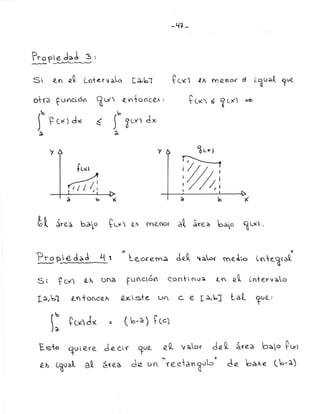 -42-
Propiedad 3:
Si en el intervalo [a,b] f(x) es menor o igual que
otra función g(x) entonces: f(x) ≤ g(x) ⇒
∫ₐᵇ f(x) dx ≤ ∫ₐᵇ g(x) dx
y f(x) a b x y g(x) a b x
El área bajo f(x) es menor al área bajo g(x).
Propiedad 4: "teorema del valor medio integral"
Si f(x) es una función continua en el intervalo
[a,b] entonces existe un c ∈ [a,b] tal que:
∫ₐᵇ f(x)dx = (b-a) f(c)
Esto quiere decir que el valor del área bajo f(x)
es igual al área de un "rectangulo" de base (b-a)